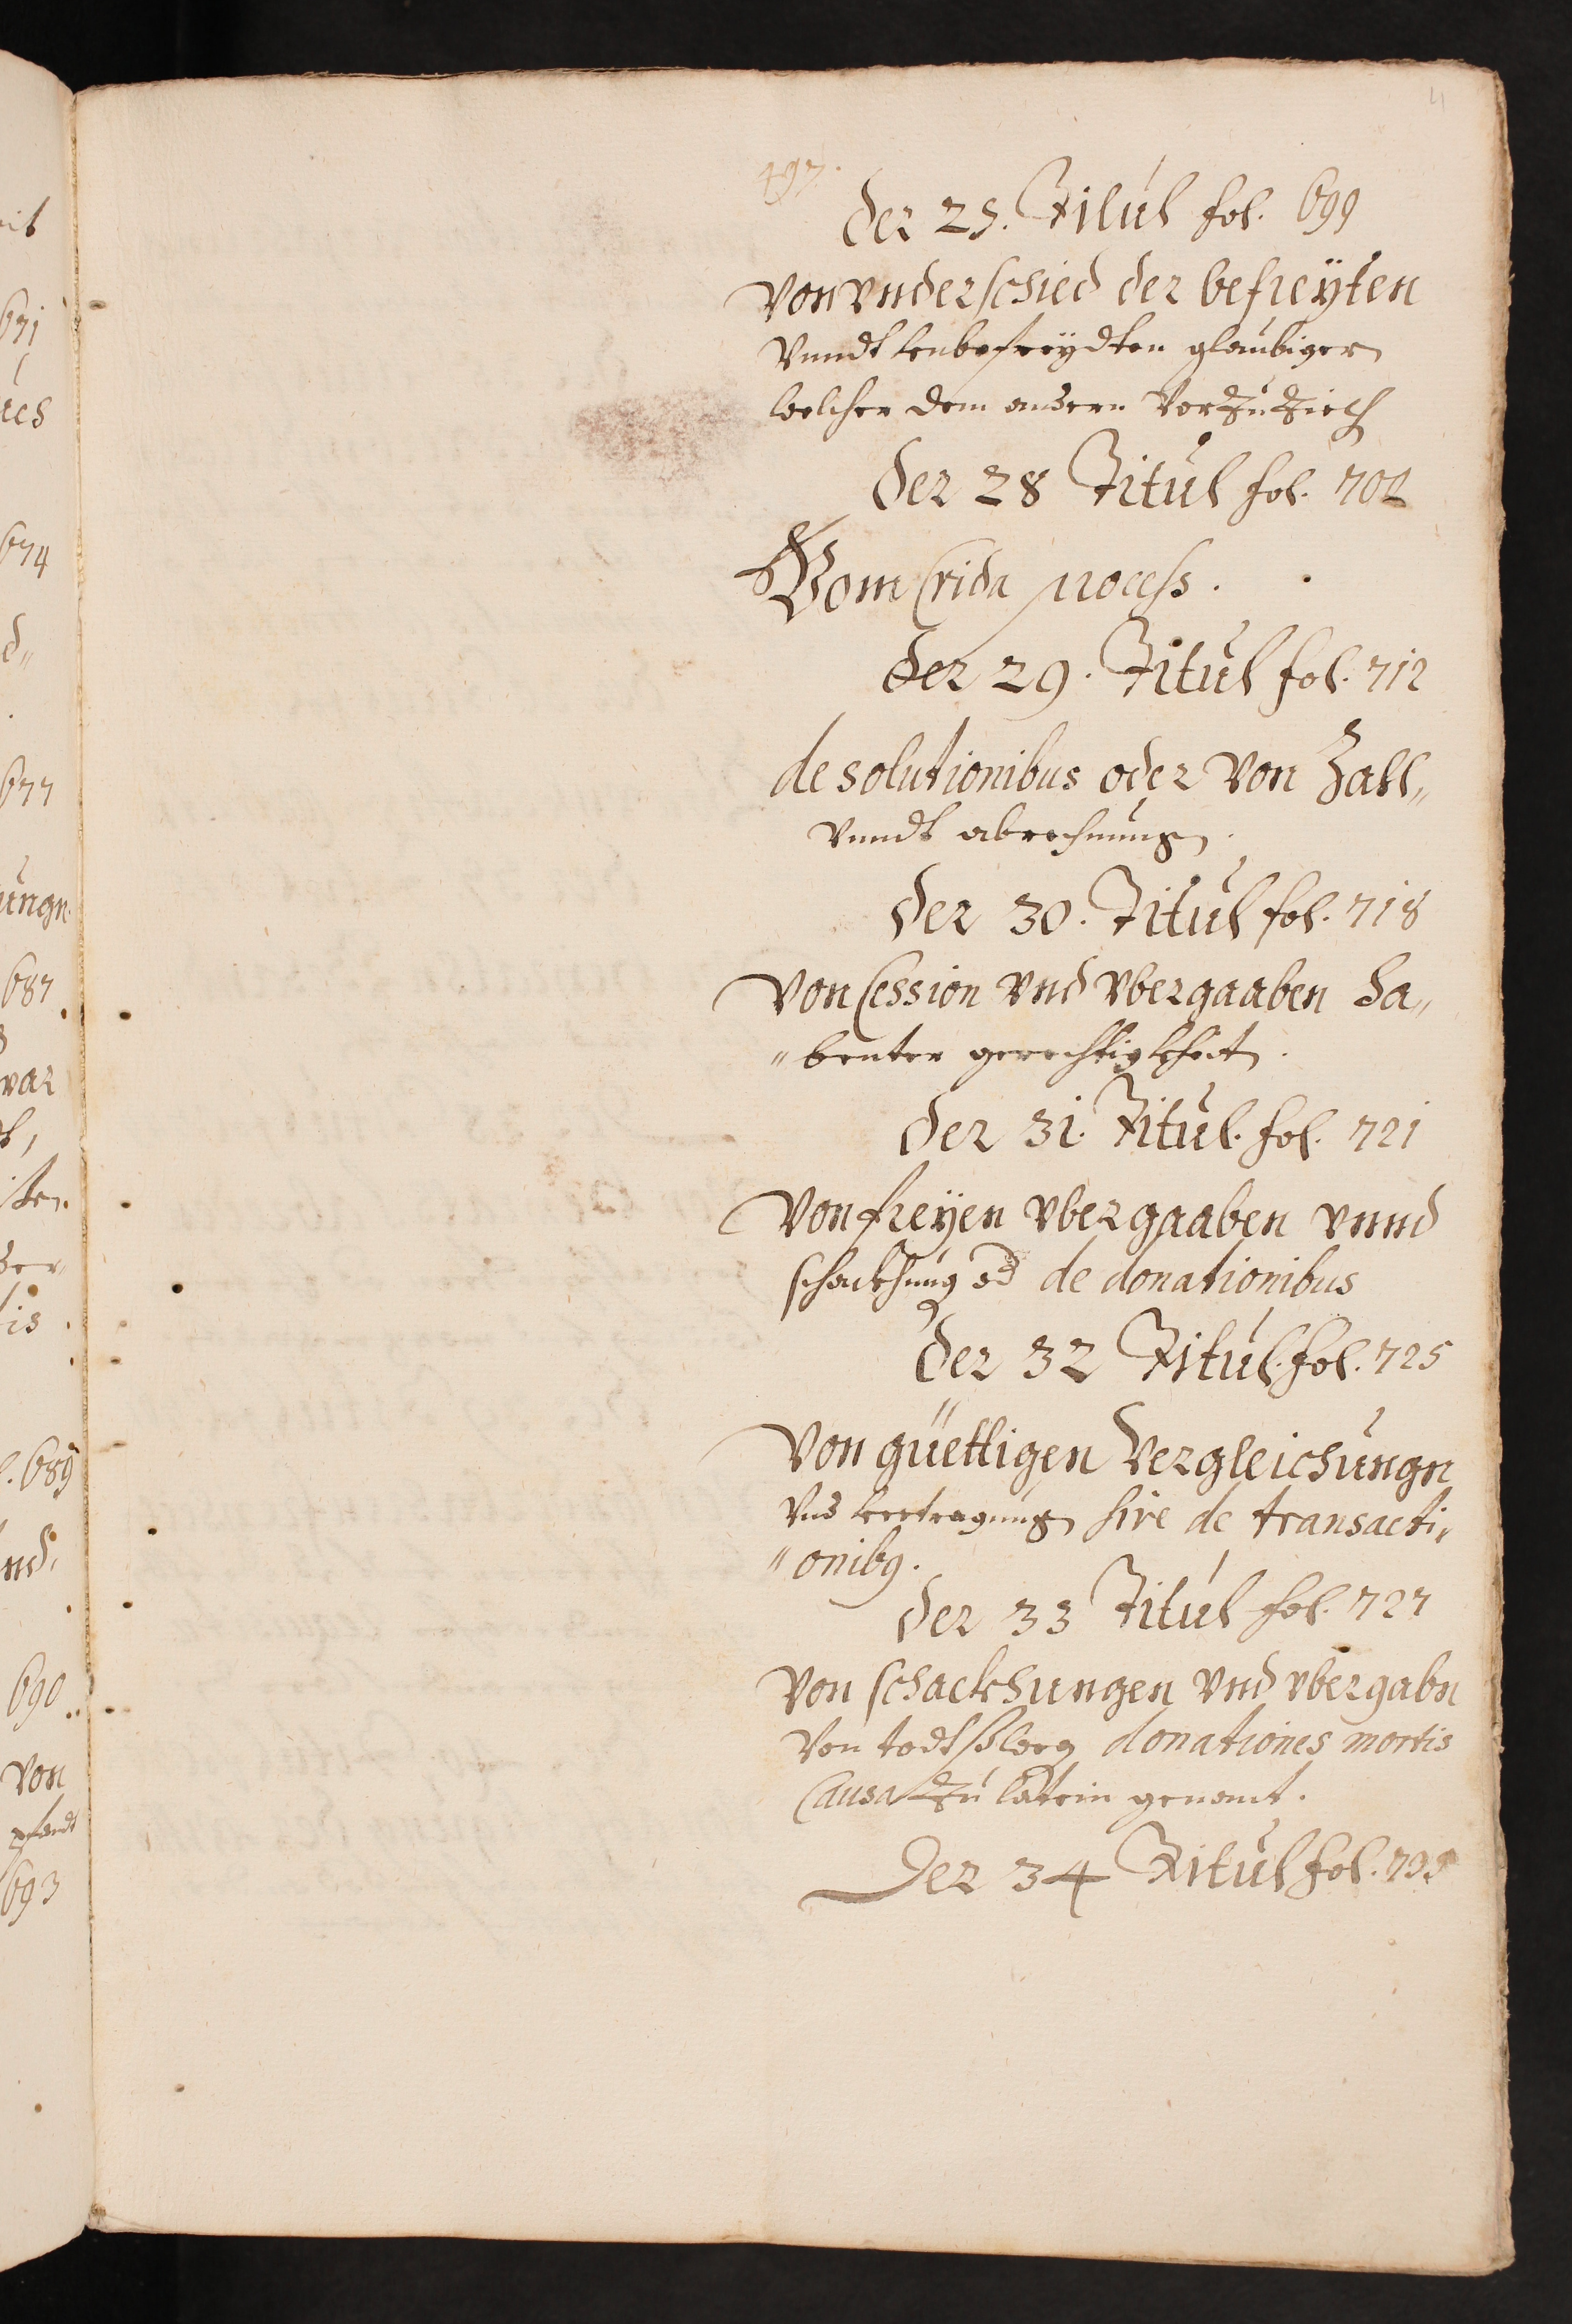 4
197.
der 25. Titul fol. 699
Von vnderschied der befreÿten
Vnndt vnbefreÿdten glaubiger
welcher dem andern Vorzuziech
der 28 Titul fol. 702
Vom Crida process.
der 29. Titul fol. 712
de solutionibus oder Von Zall„
Vnndt abrechnung.
der 30. Titul fol. 718
Von Cession vnd vbergaaben ha„
„benter gerechtigkheit.
der 31. Titul. fol. 721
Von freÿen vbergaaben vnnd
schackhung od de donationibus
der 32 Titul. fol. 725
Von güettigen Vergleichungn
Vnd vertragung sive de transacti„
„onibg.
der 33 Titul fol. 727
Von schackhungen vnd vbergabn
Von todts weg donationes mortis
Causa zu latein genant.
Der 34 Titul fol. 735
671
674
d„
677
ungn.
687
var
ten.
tis
l. 689
nd.
690
von
pfandt
693